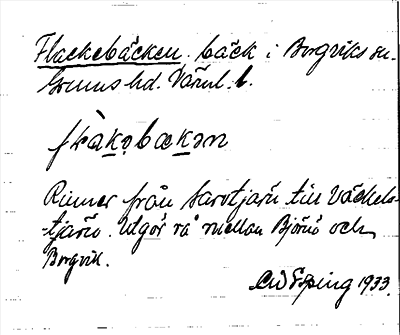 Flackebäcken. bäck i Borgviks sn.
Grums hd. Värml. l.
Rinner från Savotjärn till Väckels-
tjärn. Utgör rå mellan Björnö och
Borgvik.
1933.